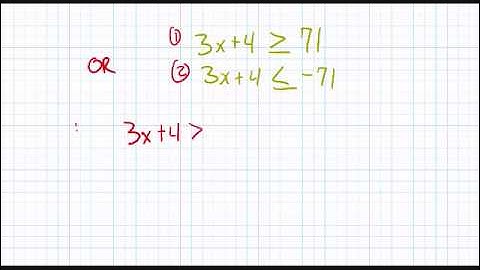 ① 3x+4 ≥ 71
OR ② 3x+4 ≤ -71
3x+4 >